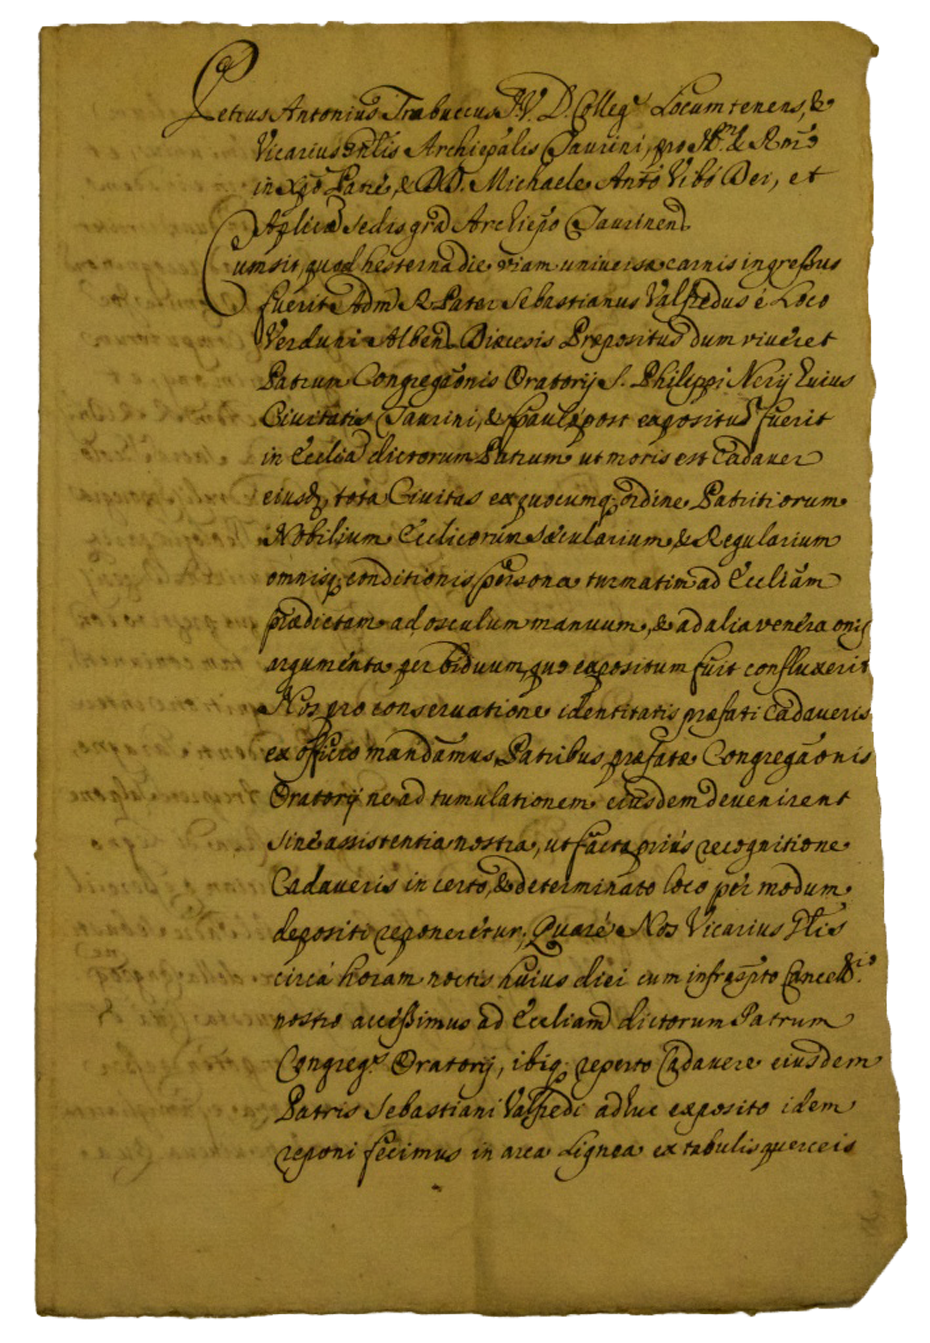 Petrus Antonius Trabuccus J. V. D. Colleg.s Locumtenens, &
Vicarius Gn̄lis Archiep̄alis Taurini, pro Ill.mo & Rm̄o
in Xp̄o Patre, & DD. Michaele Ant.o Vibò Dei, et
Ap̄licæ sedis grā Archiep̄o Taurinen.
Cum sit, quod hesterna die viam universæ carnis ingressus
fuerit Adm. R. Pater Sebastianus Valfredus è Loco
Verduni Alben. Diœcesis Præpositus dum viveret
Patrum Congregaōnis Oratorij S. Philippi Nerij huius
Civitatis Taurini, & paulò post expositus fuerit
in Eccl̄ia dictorum Patrum ut moris est Cadaver
eiusd., tota Civitas ex quocumq; ordine Patritiorum
Nobilium Eccl̄icorum sæcularium, & Regularium
omnisq; conditionis personæ turmatim ad Eccl̄iam
prædictam ad osculum manuum, & ad alia venera ōnis
argumenta per biduum, quo expositum fuit confluxerit
Nos pro conservatione identitatis præfati Cadaveris
ex officio mandamus Patribus præfatæ Congregaōnis
Oratorij ne ad tumulationem eiusdem devenirent
sine assistentia nostra, ut facta priùs recognitione
Cadaveris in certo, & determinato loco per modum
depositi reponeretur, Quare Nos Vicarius Gn̄lis
circa horam noctis huius diei cum infrasp̄to Cancell.rio
nostro accessimus ad Eccl̄iam dictorum Patrum
Congreg.s Oratorij, ibiq; reperto Cadavere eiusdem
Patris Sebastiani Valfredi adhuc exposito idem
reponi fecimus in arca Lignea ex tabulis querceis